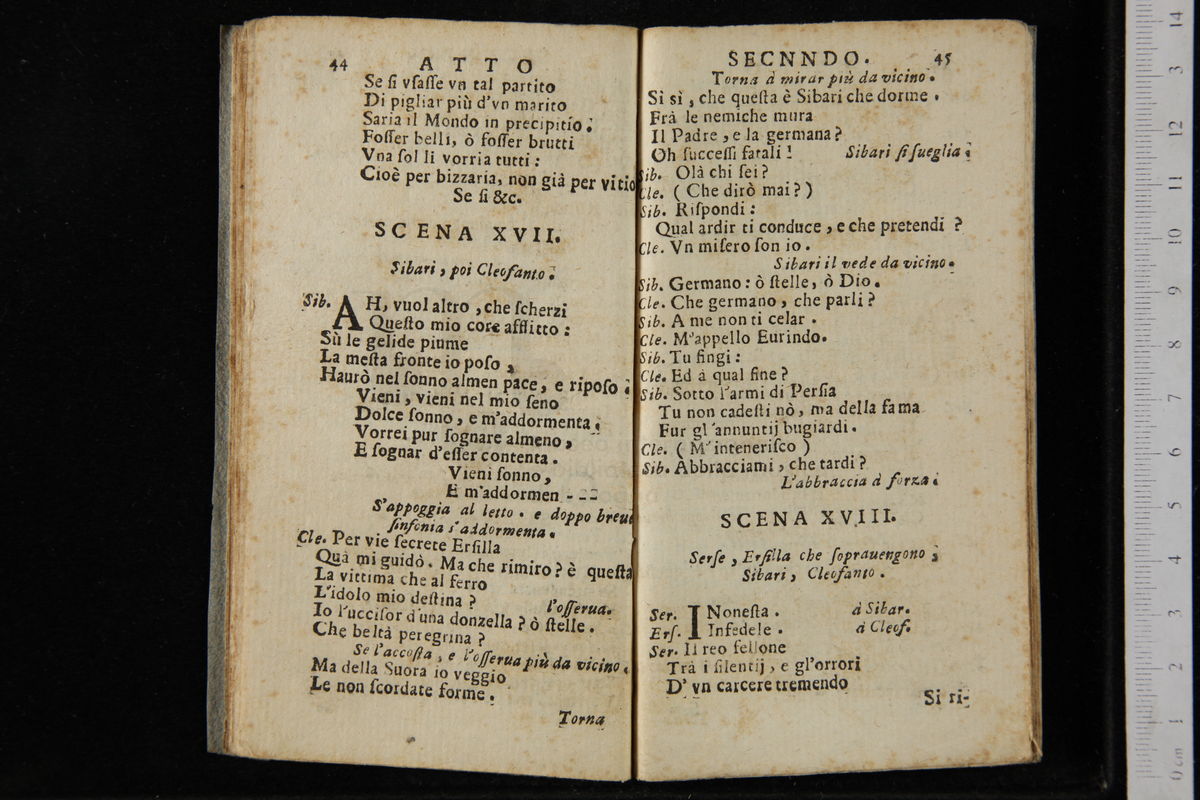 44 ATTO
Se ſi vſaſſe vn tal partito
Di pigliar più d'vn marito
Saria il Mondo in precipitio.
Foſſer belli, ò foſſer brutti
Vna ſol li vorria tutti:
Cioè per bizzaria, non già per vitio
Se ſi &c.
SCENA XVII.
Sibari, poi Cleofanto.
Sib. AH, vuol altro, che ſcherzi
Queſto mio core afflitto:
Sù le gelide piume
La meſta fronte io poſo,
Haurò nel ſonno almen pace, e ripoſo.
Vieni, vieni nel mio ſeno
Dolce ſonno, e m'addormenta.
Vorrei pur ſognare almeno,
E ſognar d'eſſer contenta.
Vieni ſonno,
E m'addormen - --
S'appoggia al letto. e doppo breue
ſinfonia s'addormenta.
Cle. Per vie ſecrete Erſilla
Quà mi guidò. Ma che rimiro? è queſta
La vittima che al ferro
L'idolo mio deſtina? l'oſſerua.
Io l'ucciſor d'una donzella? ò ſtelle.
Che beltà peregrina?
Se l'accoſta, e l'oſſerua più da vicino.
Ma della Suora io veggio
Le non ſcordate forme.
Torna
SECNNDO. 45
Torna à mirar più da vicino.
Sì sì, che queſta è Sibari che dorme.
Frà le nemiche mura
Il Padre, e la germana?
Oh ſucceſſi fatali! Sibari ſi ſueglia.
Sib. Olà chi ſei?
Cle. (Che dirò mai?)
Sib. Riſpondi:
Qual ardir ti conduce, e che pretendi?
Cle. Vn miſero ſon io.
Sibari il vede da vicino.
Sib. Germano: ò ſtelle, ò Dio.
Cle. Che germano, che parli?
Sib. A me non ti celar.
Cle. M'appello Eurindo.
Sib. Tu fingi:
Cle. Ed à qual fine?
Sib. Sotto l'armi di Perſia
Tu non cadeſti nò, ma della fama
Fur gl'annuntij bugiardi.
Cle. (M'inteneriſco)
Sib. Abbracciami, che tardi?
L'abbraccia à forza.
SCENA XVIII.
Serſe, Erſilla che ſoprauengono,
Sibari, Cleofanto.
Ser. INoneſta. à Sibar.
Erſ. Infedele. à Cleof.
Ser. Il reo fellone
Trà i ſilentij, e gl'orrori
D'vn carcere tremendo
Si ri-